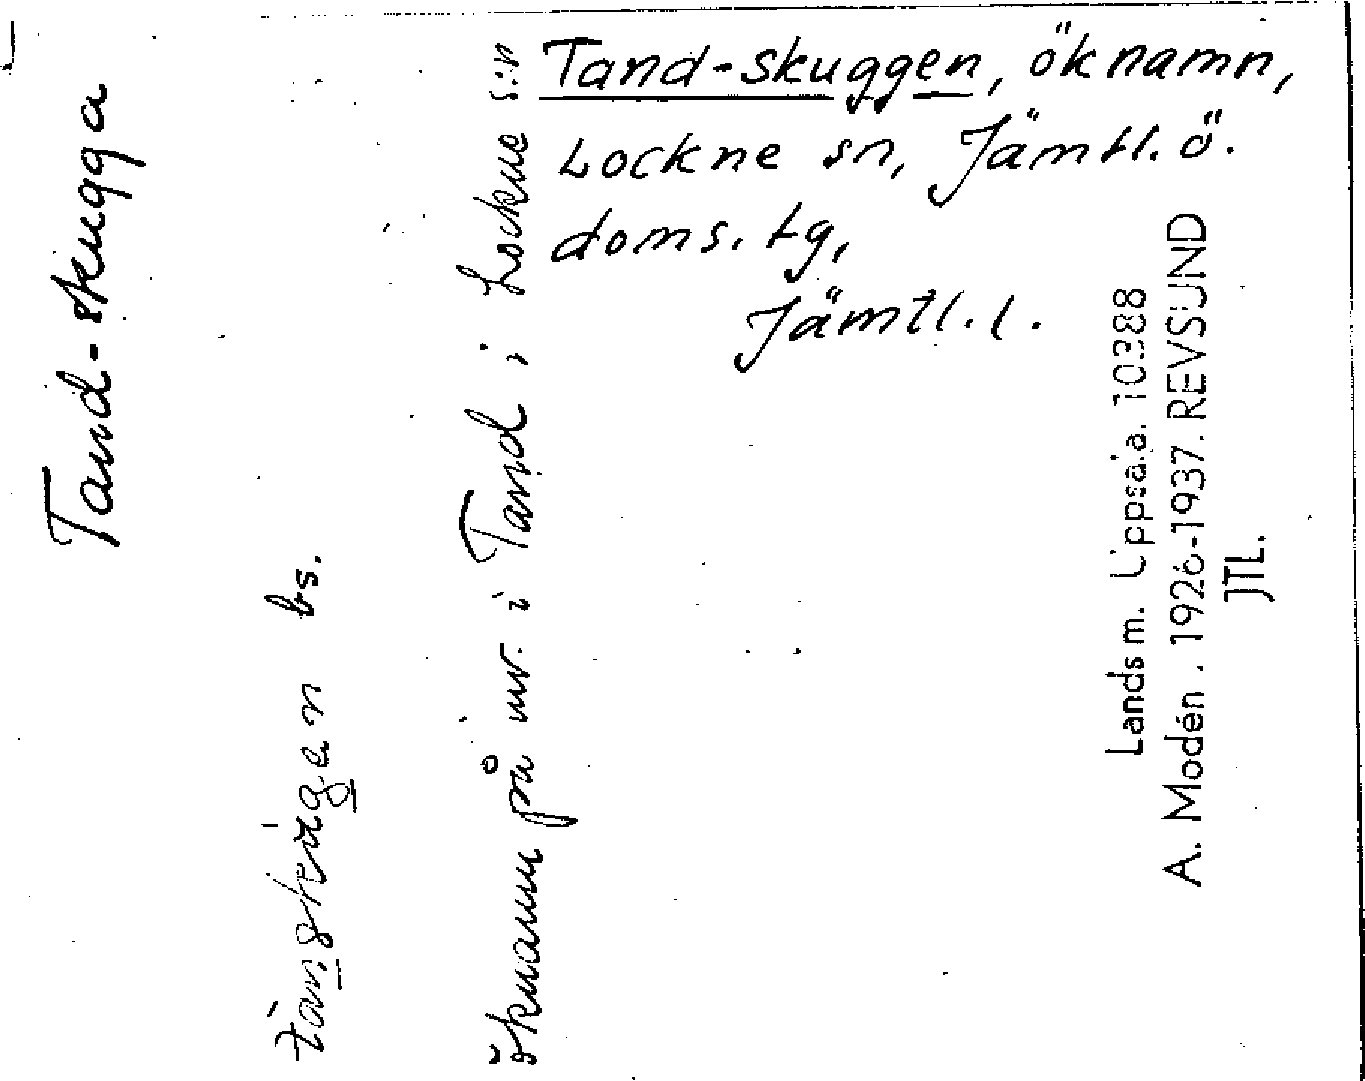 Tand-skuggen, öknamn,
Lockne sn, Jämtl. ö.
doms. tg,
Jämtl. l.
Tand-skugga
bs.
öknamn på inv. i Tand i Lockne s:n
Landsm. Uppsala. 10388
A. Modén. 1926-1937. REVSUND
JTL.